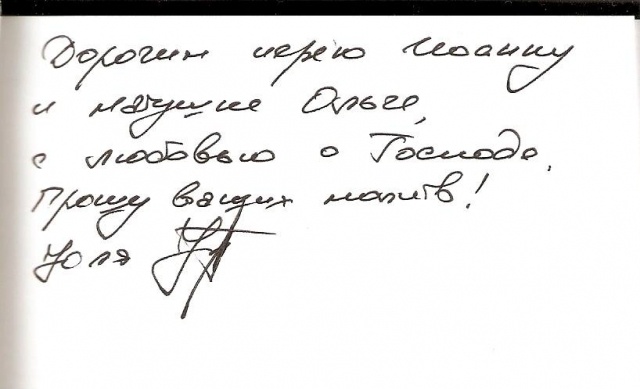 Дорогим иерею Иоанну
и матушке Ольге,
с любовью о Господе.
Прошу ваших молитв!
Юля